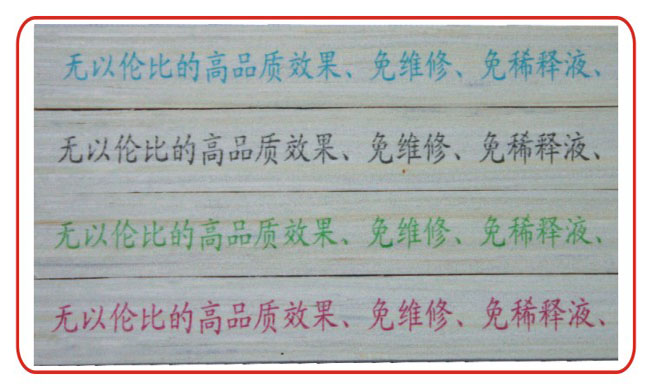 无以伦比的高品质效果、免维修、免稀释液、
无以伦比的高品质效果、免维修、免稀释液、
无以伦比的高品质效果、免维修、免稀释液、
无以伦比的高品质效果、免维修、免稀释液、